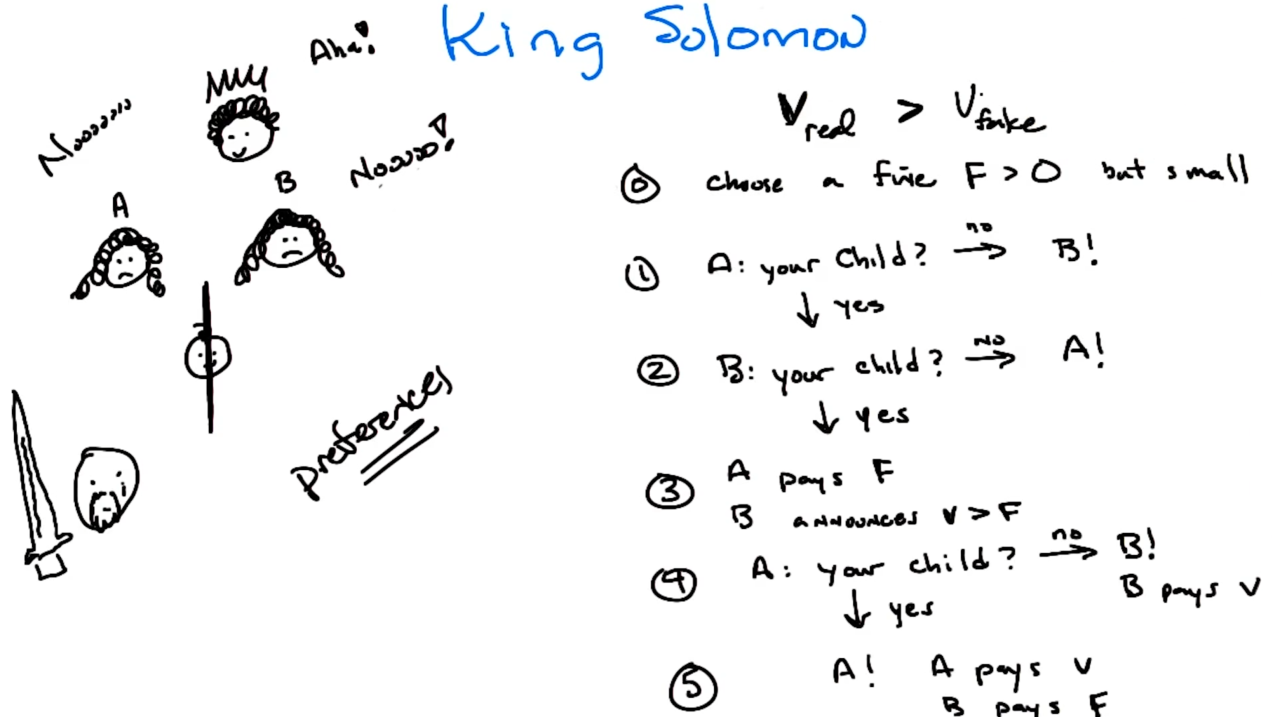 King Solomon
Aha!
Nooooooo
Nooooo!
A
B
preferences
V real > V fake
⓪ choose a fine F > 0 but small
① A: your Child? no → B!
↓ yes
② B: your child? no → A!
↓ yes
③ A pays F
B announces v > F
④ A: your child? no → B!
B pays v
↓ yes
⑤ A! A pays v
B pays F